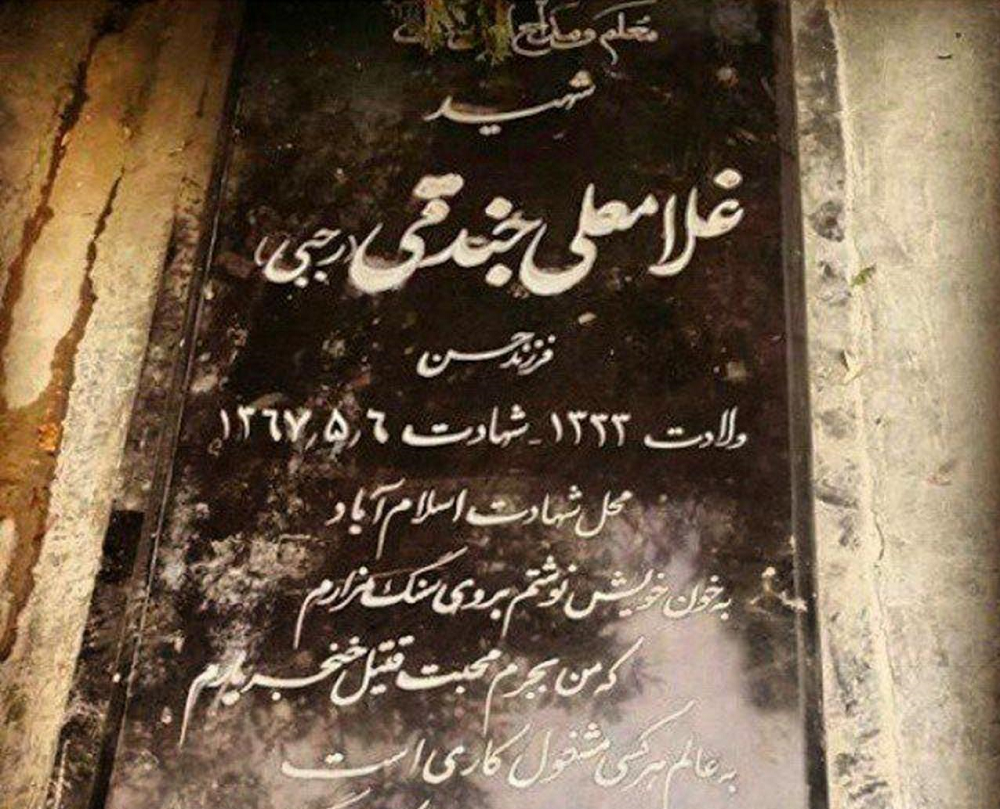 معلم و مداح
شهید
غلامعلی جندقی (رجبی)
فرزند حسن
ولادت ۱۳۳۳ - شهادت ۱۳٦۷٫۵٫٦
محل شهادت اسلام آباد
به خون خویش نوشتم بروی سنگ مزارم
که من بجرم محبت قتیل خنجر یارم
به عالم هر کسی مشغول کاری است